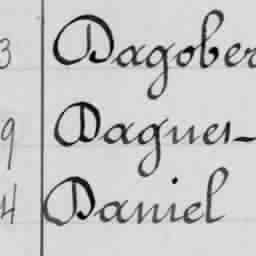 3 Dagober
9 Dagues-
4 Daniel